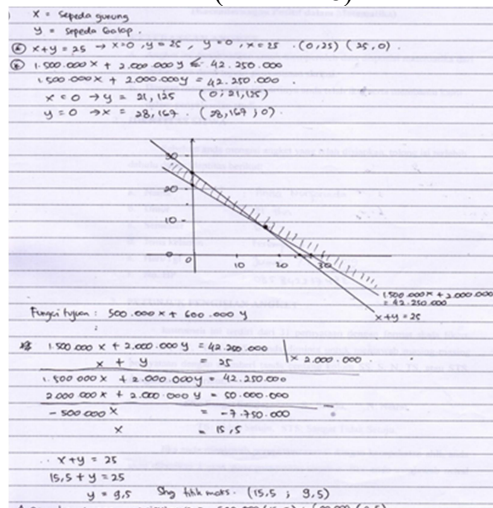 x = sepeda gunung
y = sepeda balap.
x+y = 25 → x=0, y = 25, y=0, x = 25 . (0,25) (25,0).
1.500.000x + 2.000.000y ≤ 42.250.000
1.500.000x + 2.000.000y = 42.250.000.
x = 0 → y = 21,125 (0; 21,125)
y = 0 → x = 28,167 . (28,167 ; 0).
30
20
10
0
0 10 20 30
1.500.000x + 2.000.000
= 42.250.000
x+y = 25
Fungsi tujuan : 500.000x + 600.000y
1.500.000x + 2.000.000y = 42.250.000
x + y = 25 | x 2.000.000.
1.500.000x + 2.000.000y = 42.250.000
2.000.000x + 2.000.000y = 50.000.000
-500.000x = -7.750.000
x = 15,5
∴ x+y = 25
15,5 + y = 25
y = 9,5 Shg titik maks. (15,5 ; 9,5)